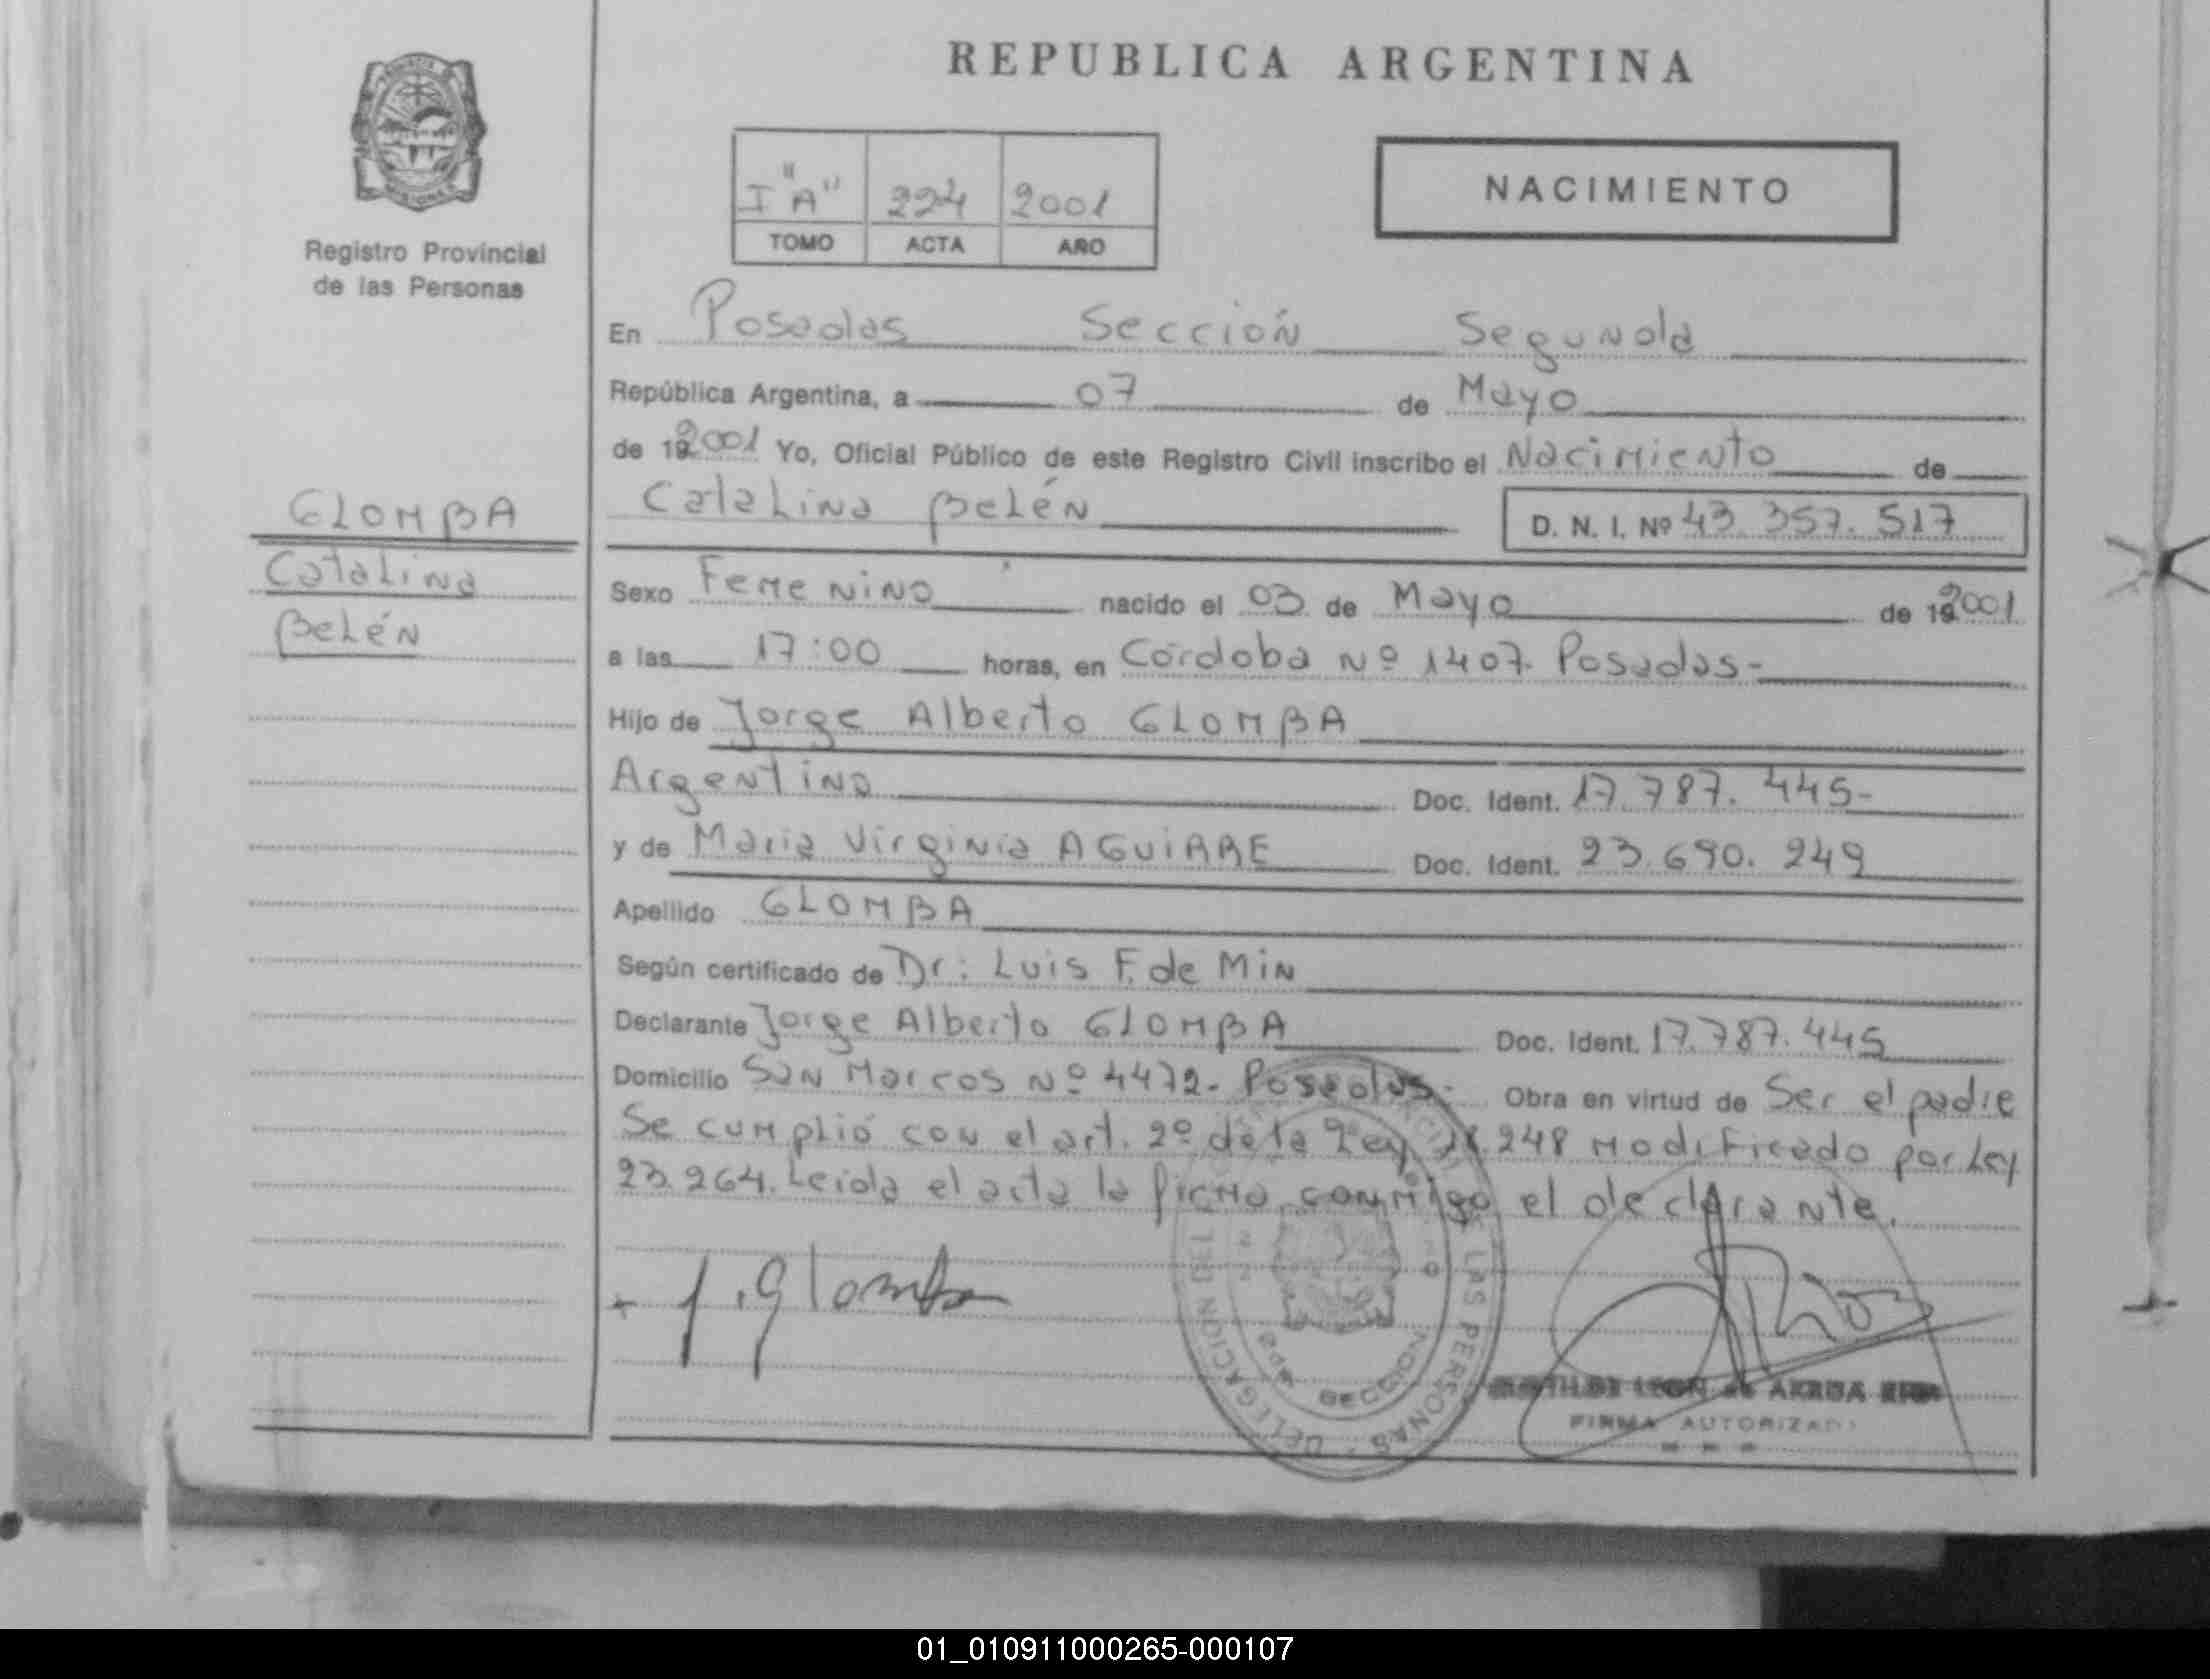 REPUBLICA ARGENTINA
I "A" 224 2001
TOMO ACTA AÑO
NACIMIENTO
Registro Provincial
de las Personas
En Posadas Sección Segunda
República Argentina, a 07 de Mayo
de 19 2001 Yo, Oficial Público de este Registro Civil inscribo el Nacimiento de
Catalina Belén D. N. I. Nº 43.357.517
GLOMBA
Catalina
Belén
Sexo Femenino nacido el 03 de Mayo de 19 2001
a las 17:00 horas, en Córdoba Nº 1407. Posadas-
Hijo de Jorge Alberto GLOMBA
Argentino Doc. Ident. 17.787.445-
y de Maria Virginia AGUIRRE Doc. Ident. 23.690.249
Apellido GLOMBA
Según certificado de Dr: Luis F. de Min
Declarante Jorge Alberto GLOMBA Doc. Ident. 17.787.445
Domicilio San Marcos Nº 4472- Posadas- Obra en virtud de Ser el padre
Se cumplió con el art. 2º de la Ley 18.248 modificado por Ley
23.264. Leida el acta la firma conmigo el declarante.
J. Glomba
DELEGACION DEL LAS PERSONAS
SECCION
FIRMA AUTORIZADA
01_010911000265-000107